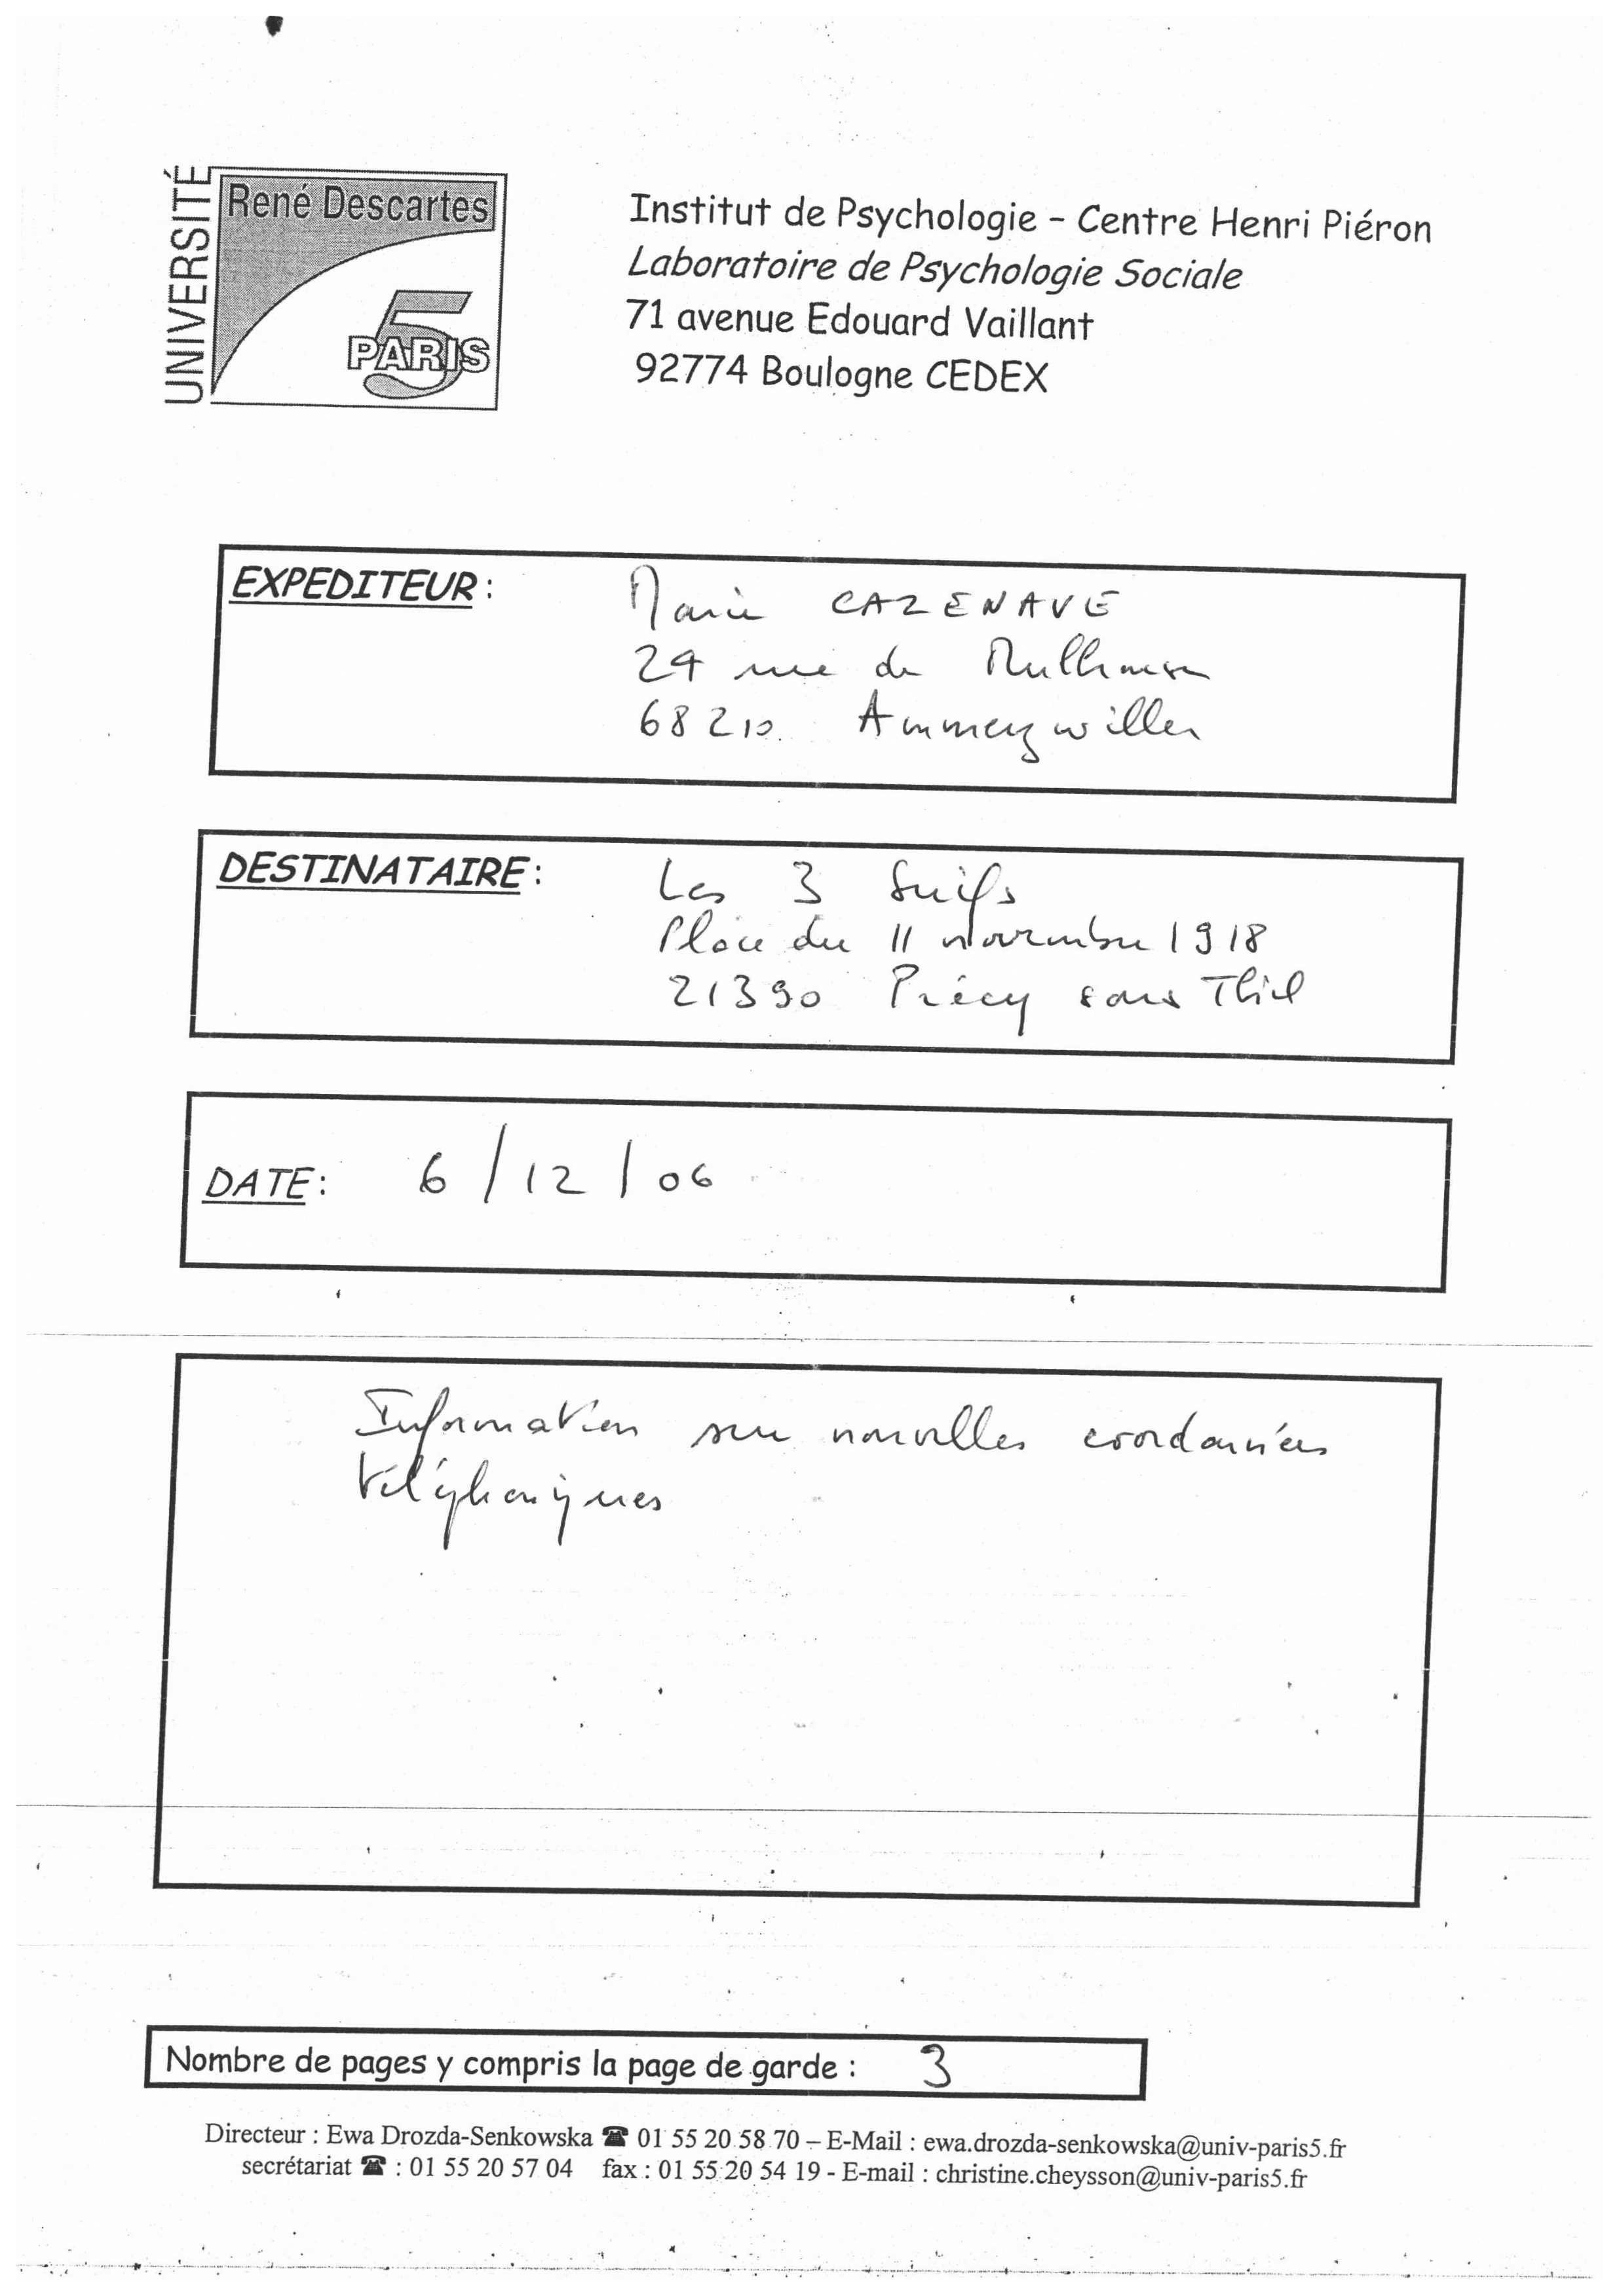 UNIVERSITÉ
René Descartes
PARIS 5
Institut de Psychologie - Centre Henri Piéron
Laboratoire de Psychologie Sociale
71 avenue Edouard Vaillant
92774 Boulogne CEDEX
EXPEDITEUR : Marie CAZENAVE
24 rue de Mulhouse
68210 Ammerzwiller
DESTINATAIRE : Les 3 Suifs
Place du 11 novembre 1918
21390 Précy sous Thil
DATE : 6/12/06
Information sur nouvelles coordonnées
téléphoniques
Nombre de pages y compris la page de garde : 3
Directeur : Ewa Drozda-Senkowska ☎ 01 55 20 58 70 – E-Mail : ewa.drozda-senkowska@univ-paris5.fr
secrétariat ☎ : 01 55 20 57 04 fax : 01 55 20 54 19 - E-mail : christine.cheysson@univ-paris5.fr